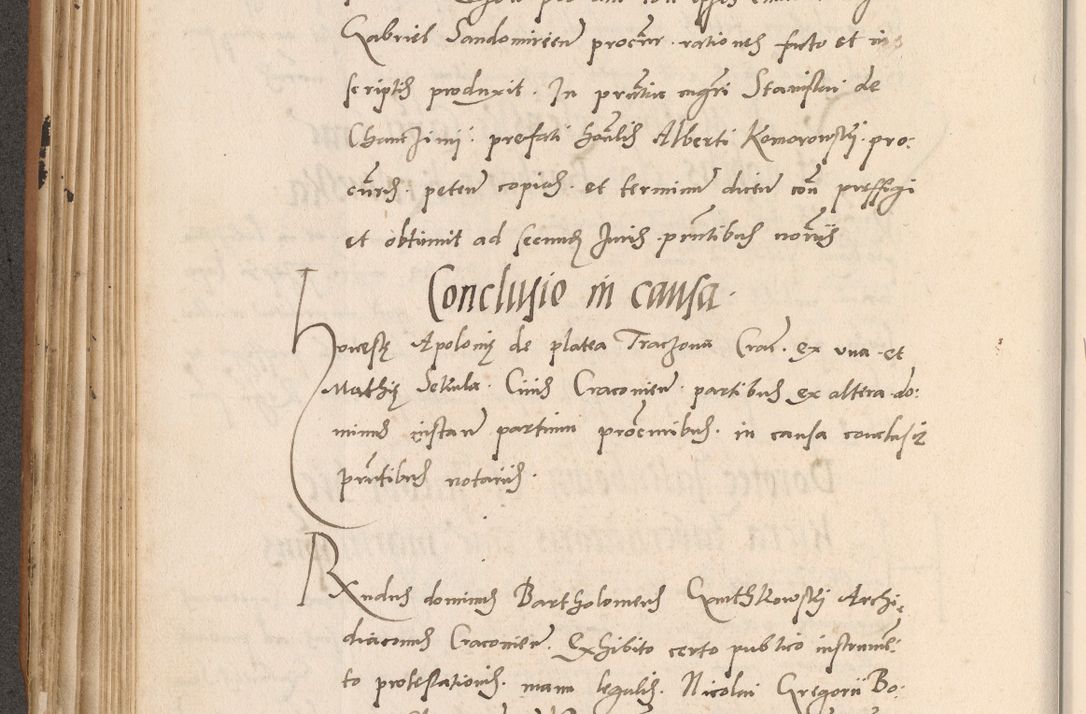 Gabriel Sandomirien procur. rationes facto et in
scriptis produxit. In prntia mgri Stanislai de
Chanczinii. prefati honlis Alberti Komorowskij. pro:
curis. peten copias. et terminum dicen con prefigi
et obtinuit ad secundum Juris. prntibus notariis
Conclusio in causa.
Honestę Apolonię de platea Traczona Crac. ex una et
Mathię Sekula. Civis Cracovien. partibus ex altera. do:
minus instan partium procuribus. in causa conclusit
prntibus notariis.
Rxndus dominus Bartholomeus Gantkowskij Archi:
diaconus Cracovien. Exhibito certo publico instrumen:
to protestationis. manu legalis. Nicolai Gregorii Bo: